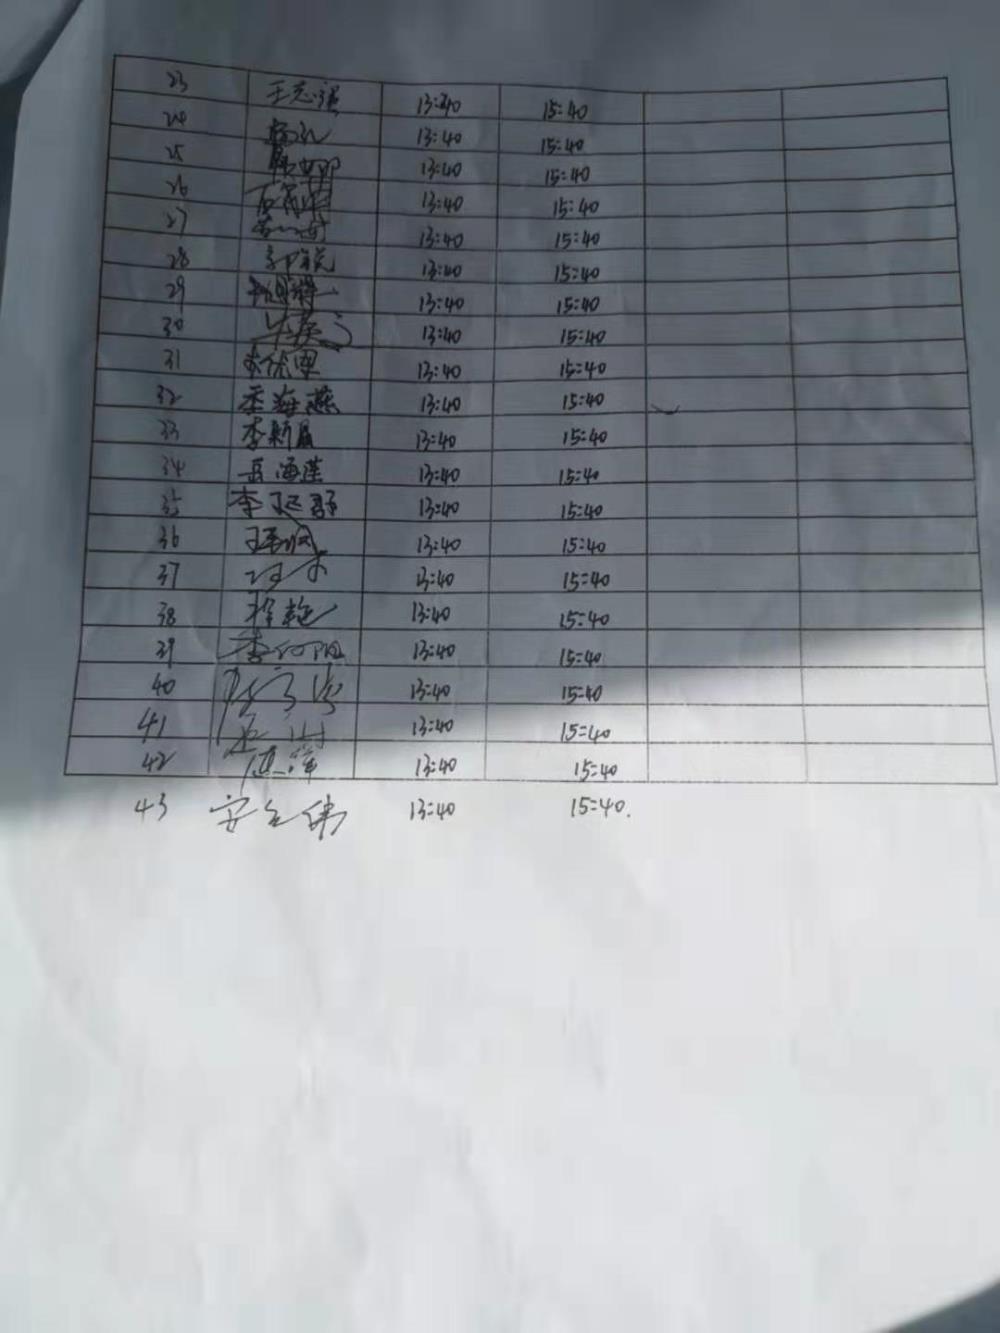 23 王志强 13:40 15:40
24 杨礼 13:40 15:40
25 13:40 15:40
26 13:40 15:40
27 13:40 15:40
28 郭锐 13:40 15:40
29 13:40 15:40
30 13:40 15:40
31 13:40 15:40
32 李海燕 13:40 15:40
33 李新 13:40 15:40
34 岳海莲 13:40 15:40
35 李延 13:40 15:40
36 13:40 15:40
37 13:40 15:40
38 徐艳 13:40 15:40
39 李向阳 13:40 15:40
40 13:40 15:40
41 13:40 15:40
42 13:40 15:40
43 安全伟 13:40 15:40.